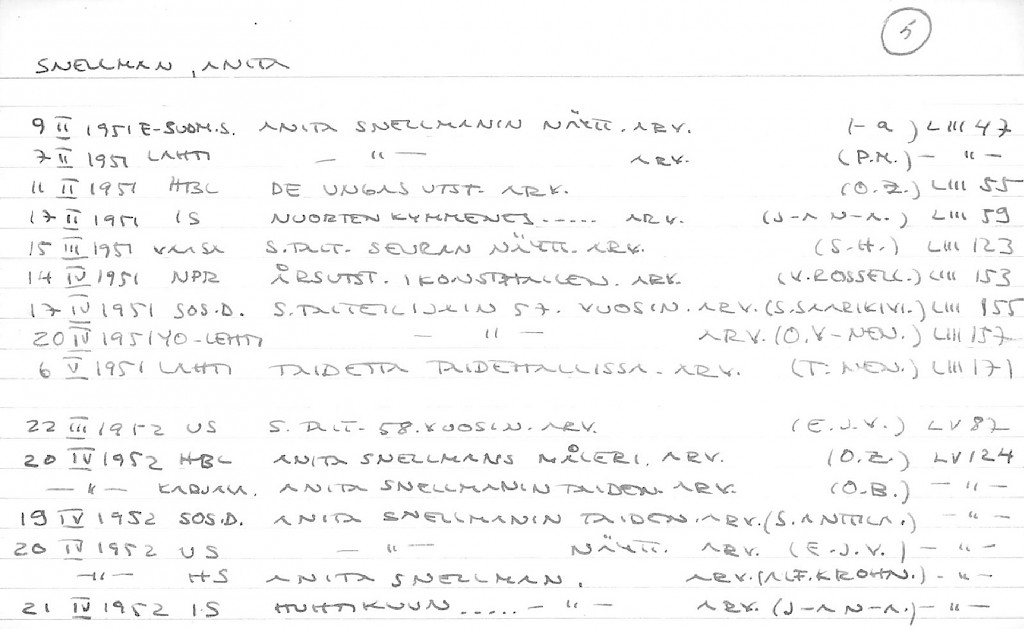 5
SNELLMAN, ANITA
9 II 1951 E-SUOM.S. ANITA SNELLMANIN NÄYTT. ARV. (-a ) LIII 47
7 II 1951 LAHTI — " — ARV. (P.M.) — " —
11 II 1951 HBL DE UNGAS UTST. ARV. (O.Z.) LIII 55
17 II 1951 IS NUORTEN KYMMENES..... ARV. (J-A N-A.) LIII 59
15 III 1951 VAASA S.TAIT. SEURAN NÄYTT. ARV. (S-H.) LIII 123
14 IV 1951 NPR ÅRSUTST. I KONSTHALLEN. ARV. (V.ROSSELL.) LIII 153
17 IV 1951 SOS.D. S.TAITEILIJAIN 57. VUOSIN. ARV. (S.SAARIKIVI.) LIII 155
20 IV 1951 YO-LEHTI — " — ARV. (O.V-NEN.) LIII 157
6 V 1951 LAHTI TAIDETTA TAIDEHALLISSA. ARV. (T: NEN.) LIII 171
22 III 1952 US S. TAIT. 58. VUOSIN. ARV. (E.J.V.) LV 87
20 IV 1952 HBL ANITA SNELLMANS MÅLERI. ARV. (O.Z.) LV 124
— " — KARJALA. ANITA SNELLMANIN TAIDEN. ARV. (O-B.) — " —
19 IV 1952 SOS.D. ANITA SNELLMANIN TAIDEN. ARV. (S.ANTTILA.) — " —
20 IV 1952 US — " — NÄYTT. ARV. (E-J.V.) — " —
— " — HS ANITA SNELLMAN. ARV. (ALF.KROHN.) — " —
21 IV 1952 I.S HUHTIKUUN..... — " — ARV. (J-A N-A.) — " —